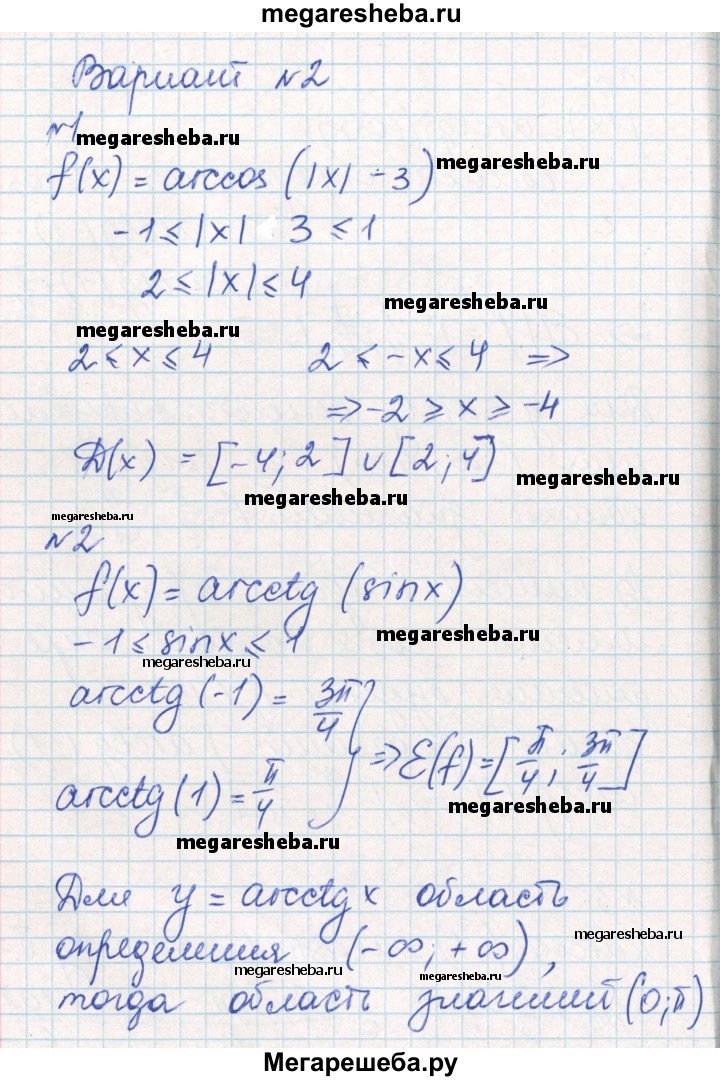 megaresheba.ru
Вариант №2
№1
megaresheba.ru
megaresheba.ru
f(x) = arccos (|x| - 3)
-1 ≤ |x| 3 ≤ 1
2 ≤ |x| ≤ 4
megaresheba.ru
megaresheba.ru
2 ≤ x ≤ 4 2 ≤ -x ≤ 4 =>
=> -2 ≥ x ≥ -4
D(x) = [-4; 2] ∪ [2; 4]
megaresheba.ru
megaresheba.ru
megaresheba.ru
№2
f(x) = arcctg (sinx)
-1 ≤ sinx ≤ 1
megaresheba.ru
megaresheba.ru
arcctg (-1) = 3π/4
=> E(f) = [π/4; 3π/4]
arcctg (1) = π/4
megaresheba.ru
megaresheba.ru
Для y = arcctg x область
определения (-∞; +∞),
megaresheba.ru
megaresheba.ru
megaresheba.ru
тогда область значений (0; π)
Мегарешеба.ру